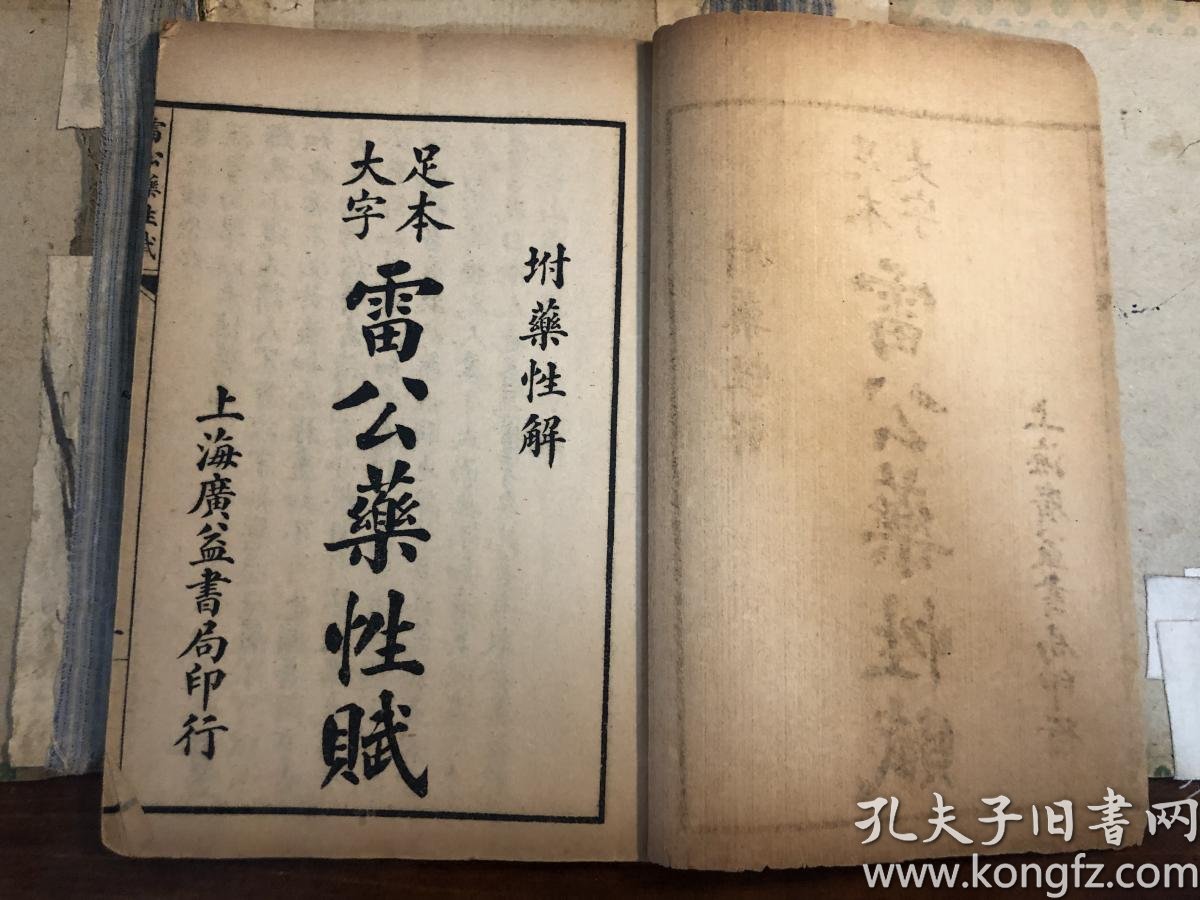 坿藥性解
足本
大字
雷公藥性賦
上海廣益書局印行
雷公藥性賦
孔夫子旧书网
www.kongfz.com